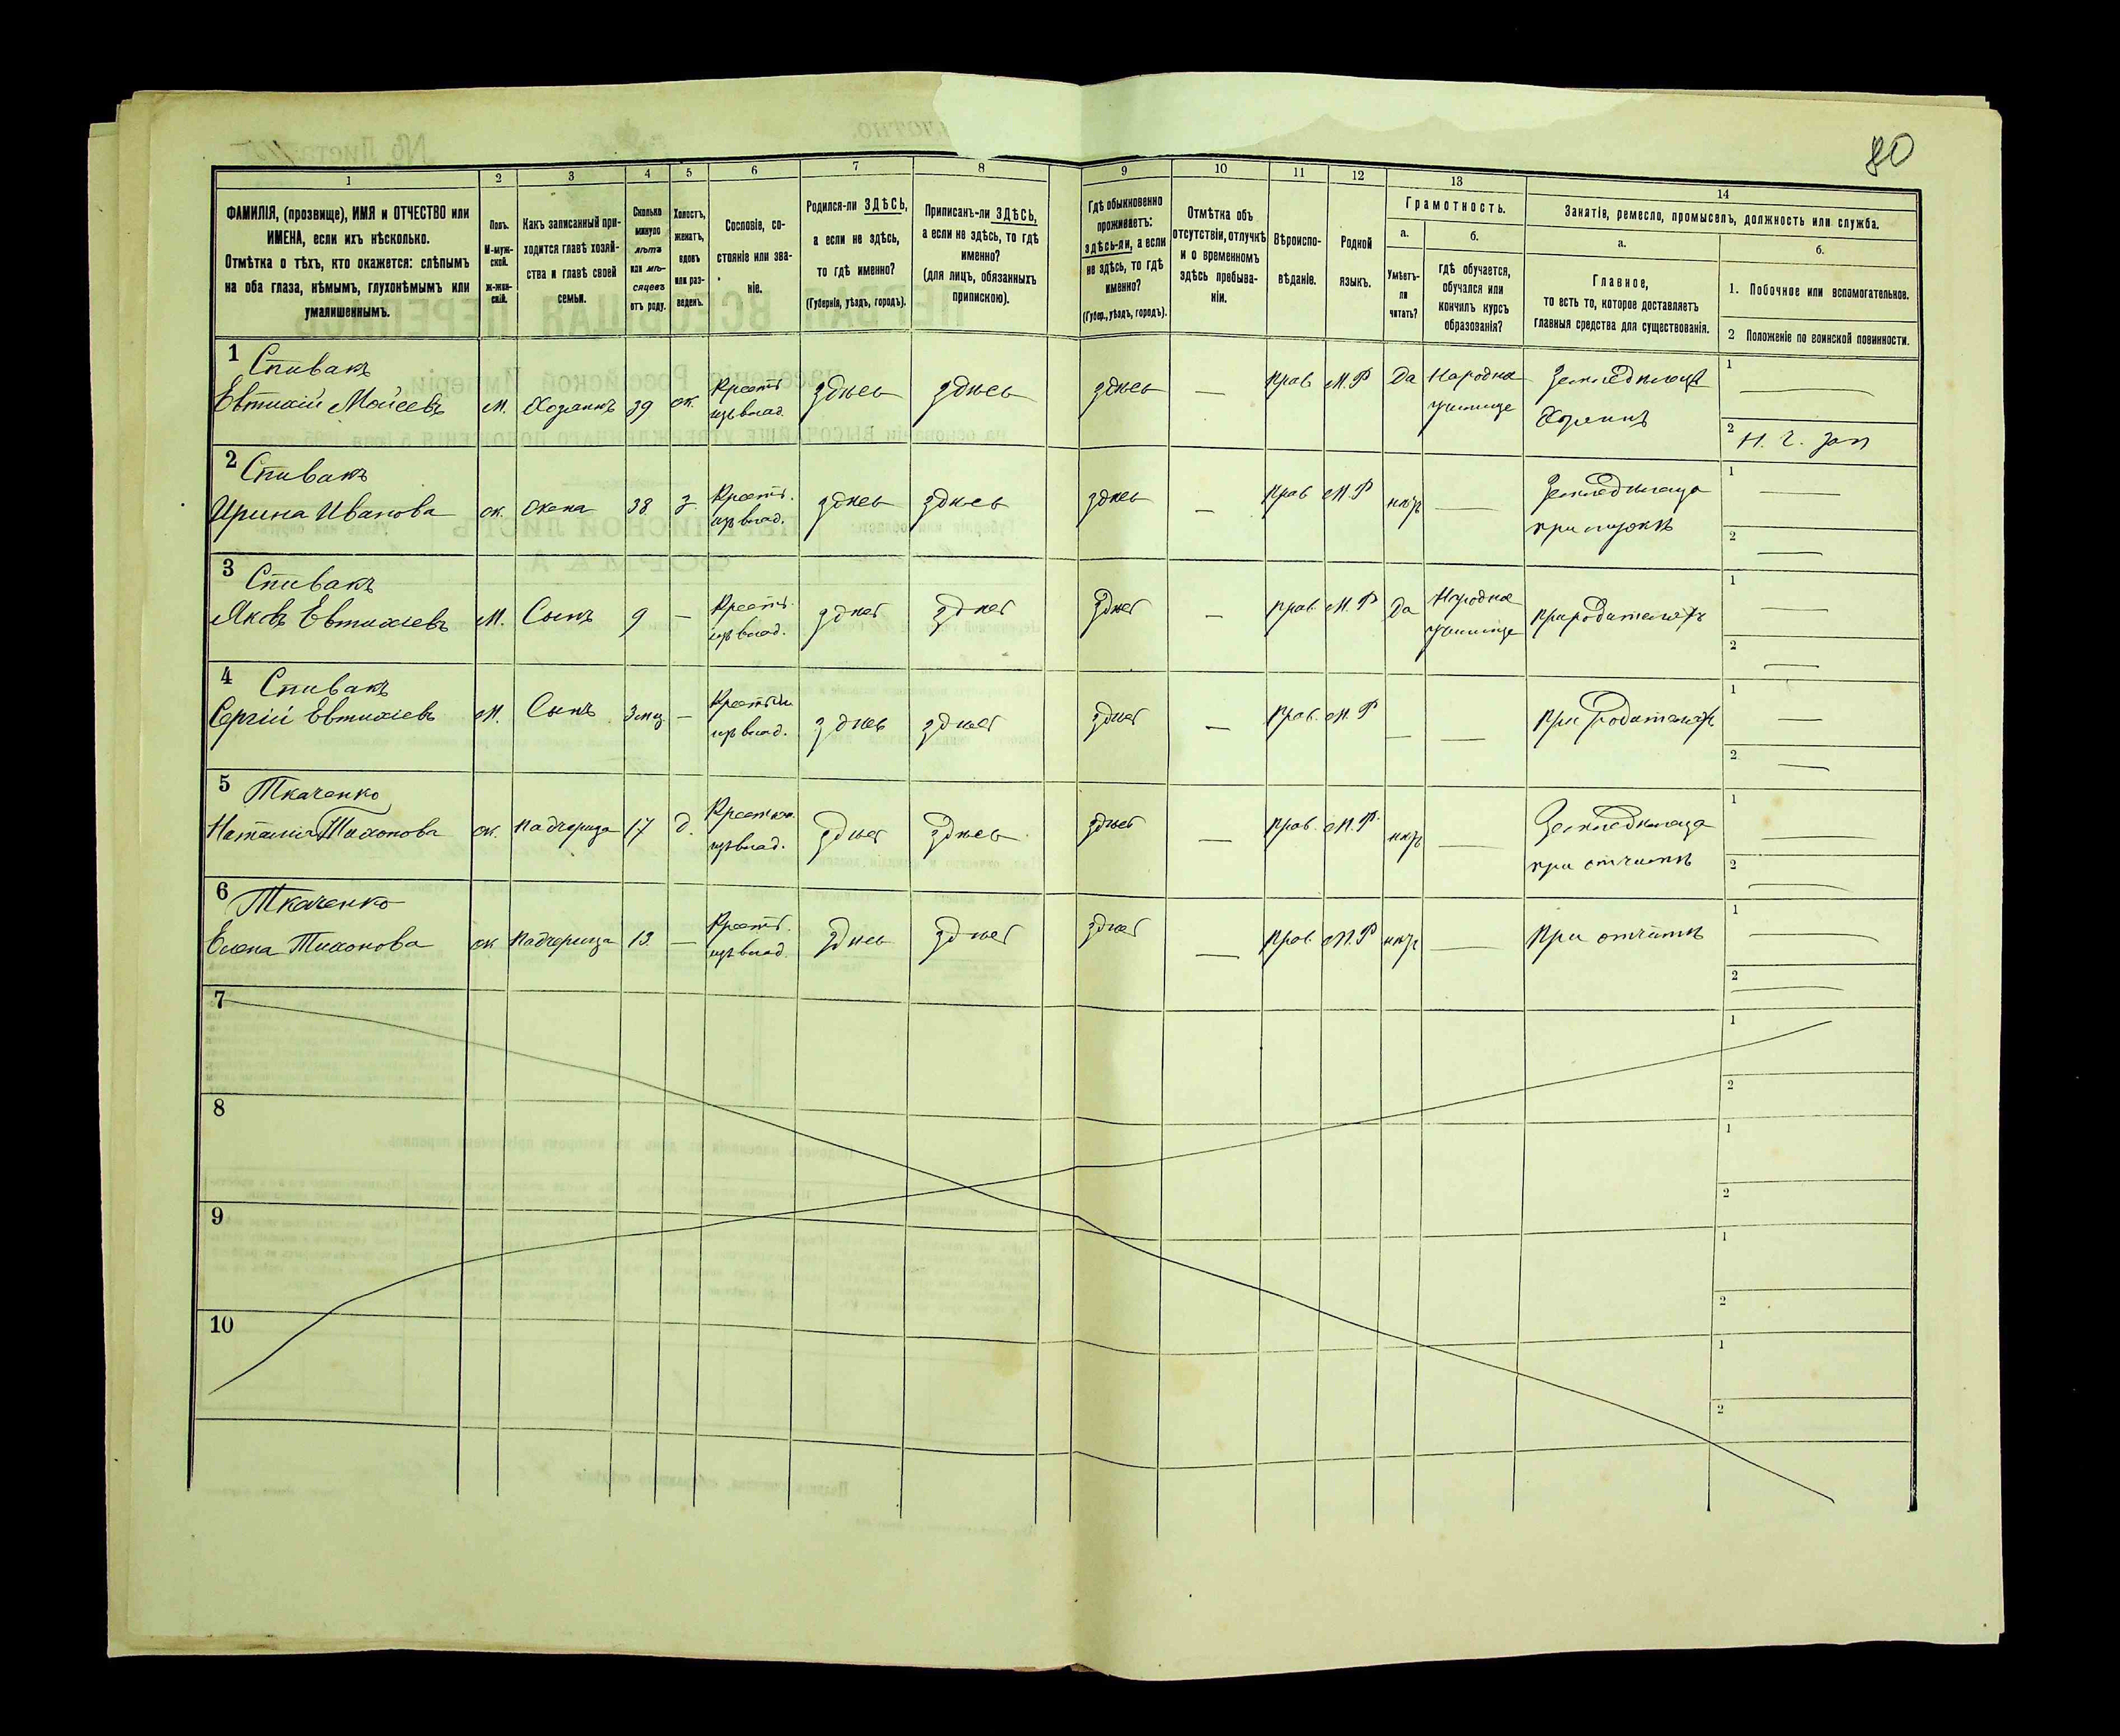 80
1
2
3
4
5
6
7
8
9
10
11
12
13
14
ФАМИЛІЯ, (прозвище), ИМЯ и ОТЧЕСТВО или
ИМЕНА, если ихъ нѣсколько.
Отмѣтка о тѣхъ, кто окажется: слѣпымъ
на оба глаза, нѣмымъ, глухонѣмымъ или
умалишеннымъ.
Полъ.
М-муж-
ской.
Ж-жен-
скій.
Какъ записанный при-
ходится главѣ хозяй-
ства и главѣ своей
семьи.
Сколько
минуло
лѣтъ
или мѣ-
сяцевъ
отъ роду.
Холостъ,
женатъ,
вдовъ
или раз-
веденъ.
Сословіе, со-
стояніе или зва-
ніе.
Родился-ли ЗДѢСЬ,
а если не здѣсь,
то гдѣ именно?
(Губернія, уѣздъ, городъ).
Приписанъ-ли ЗДѢСЬ,
а если не здѣсь, то гдѣ
именно?
(для лицъ, обязанныхъ
припискою).
Гдѣ обыкновенно
проживаетъ:
здѣсь-ли, а если
не здѣсь, то гдѣ
именно?
(Губер., уѣздъ, городъ).
Отмѣтка объ
отсутствіи, отлучкѣ
и о временномъ
здѣсь пребыва-
ніи.
Вѣроиспо-
вѣданіе.
Родной
языкъ.
Грамотность.
а.
Умѣетъ-
ли
читать?
б.
гдѣ обучается,
обучался или
кончилъ курсъ
образованія?
Занятія, ремесло, промыселъ, должность или служба.
а.
Главное,
то есть то, которое доставляетъ
главныя средства для существованія.
б.
1. Побочное или вспомогательное.
2 Положеніе по воинской повинности.
1 Спивакъ
Евтихій Моісеевъ М. Хозяинъ 39 ж. Крест. изъ влад. здѣсь здѣсь здѣсь — Прав. М.Р Да Народное училище Земледѣлецъ Хозяинъ 1 —
2 Н. Ч. Зап
2 Спивакъ
Ирина Иванова ж. Жена 38 з. Крест. изъ влад. здѣсь здѣсь здѣсь — Прав М.Р нѣтъ — Земледѣлица при мужѣ 1 —
2 —
3 Спивакъ
Яковъ Евтихіевъ М. Сынъ 9 — Крест. изъ влад. здѣсь здѣсь здѣсь — Прав. М.Р Да Народное училище При родителяхъ 1 —
2 —
4 Спивакъ
Сергій Евтихіевъ М. Сынъ 3 мц — Крестьян изъ влад. здѣсь здѣсь здѣсь — Прав. М.Р — — При родителяхъ 1 —
2 —
5 Ткаченко
Наталия Тихонова ж. Падчерица 17 д. Крестьян. изъ влад. здѣсь здѣсь здѣсь — Прав. М.Р. нѣтъ — Земледѣлица при отчимѣ 1 —
2 —
6 Ткаченко
Елена Тихонова ж Падчерица 13 — Крест. изъ влад. здѣсь здѣсь здѣсь — Прав. М.Р нѣтъ — При отчимѣ 1 —
2 —
7
1
2
8
1
2
9
1
2
10
1
2